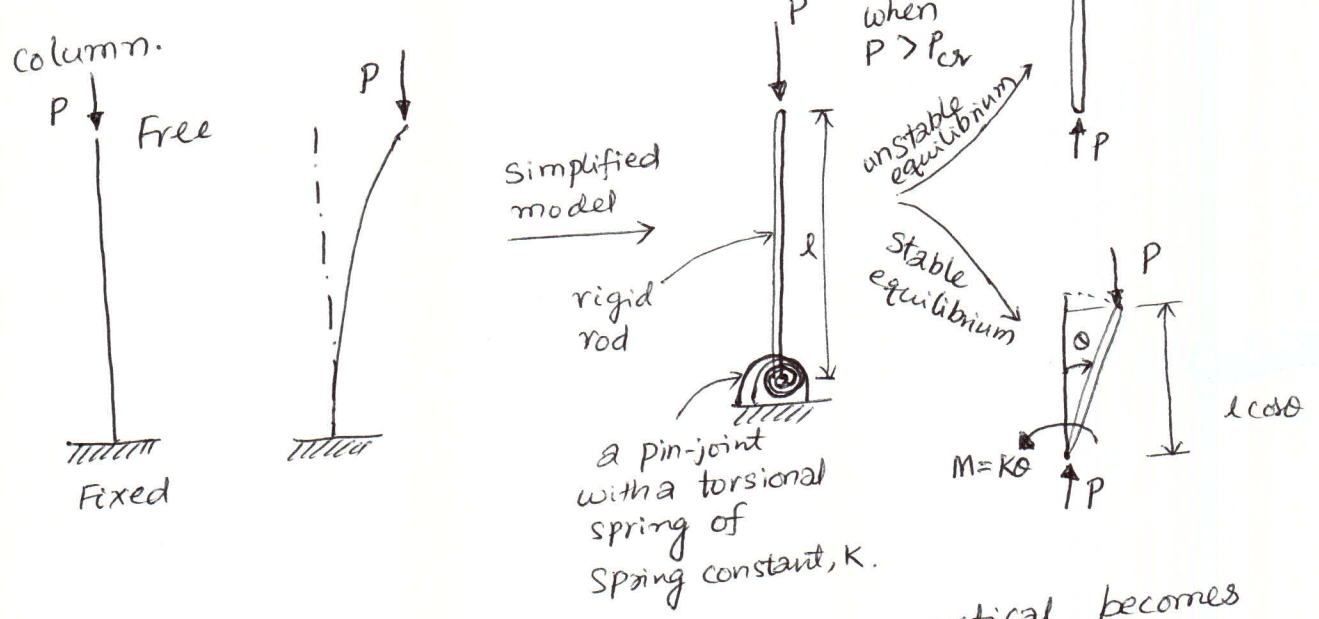 Column.
P
Free
Fixed
P
Simplified
model
rigid
rod
P
l
a pin-joint
with a torsional
spring of
Spring constant, K.
when
P > Pcr
unstable
equilibrium
P
Stable
equilibrium
P
θ
l cosθ
M = Kθ
P
becomes